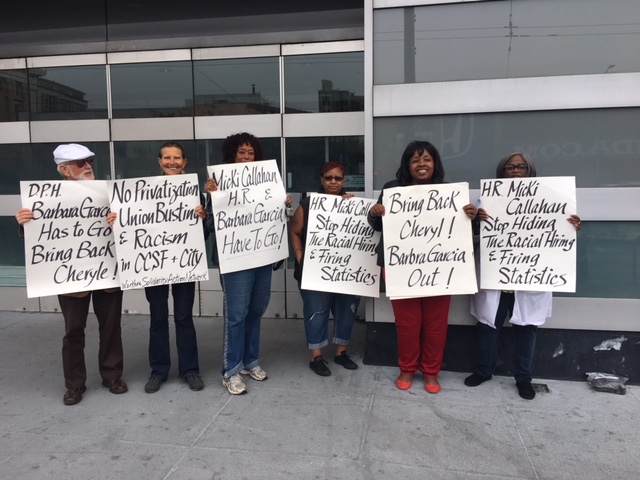 D.P.H.
Barbara Garcia
Has to Go
Bring Back
Cheryle!
No Privatization
Union Busting
& Racism
in CCSF + City
Workers Solidarity Action Network
Micki Callahan
H.R. &
Barbara Garcia
Have To Go!
HR Micki
Callahan
Stop Hiding
The Racial Hiring
& Firing
Statistics
Bring Back
Cheryl!
Barbra Garcia
Out!
HR Micki
Callahan
Stop Hiding
The Racial Hiring
& Firing
Statistics